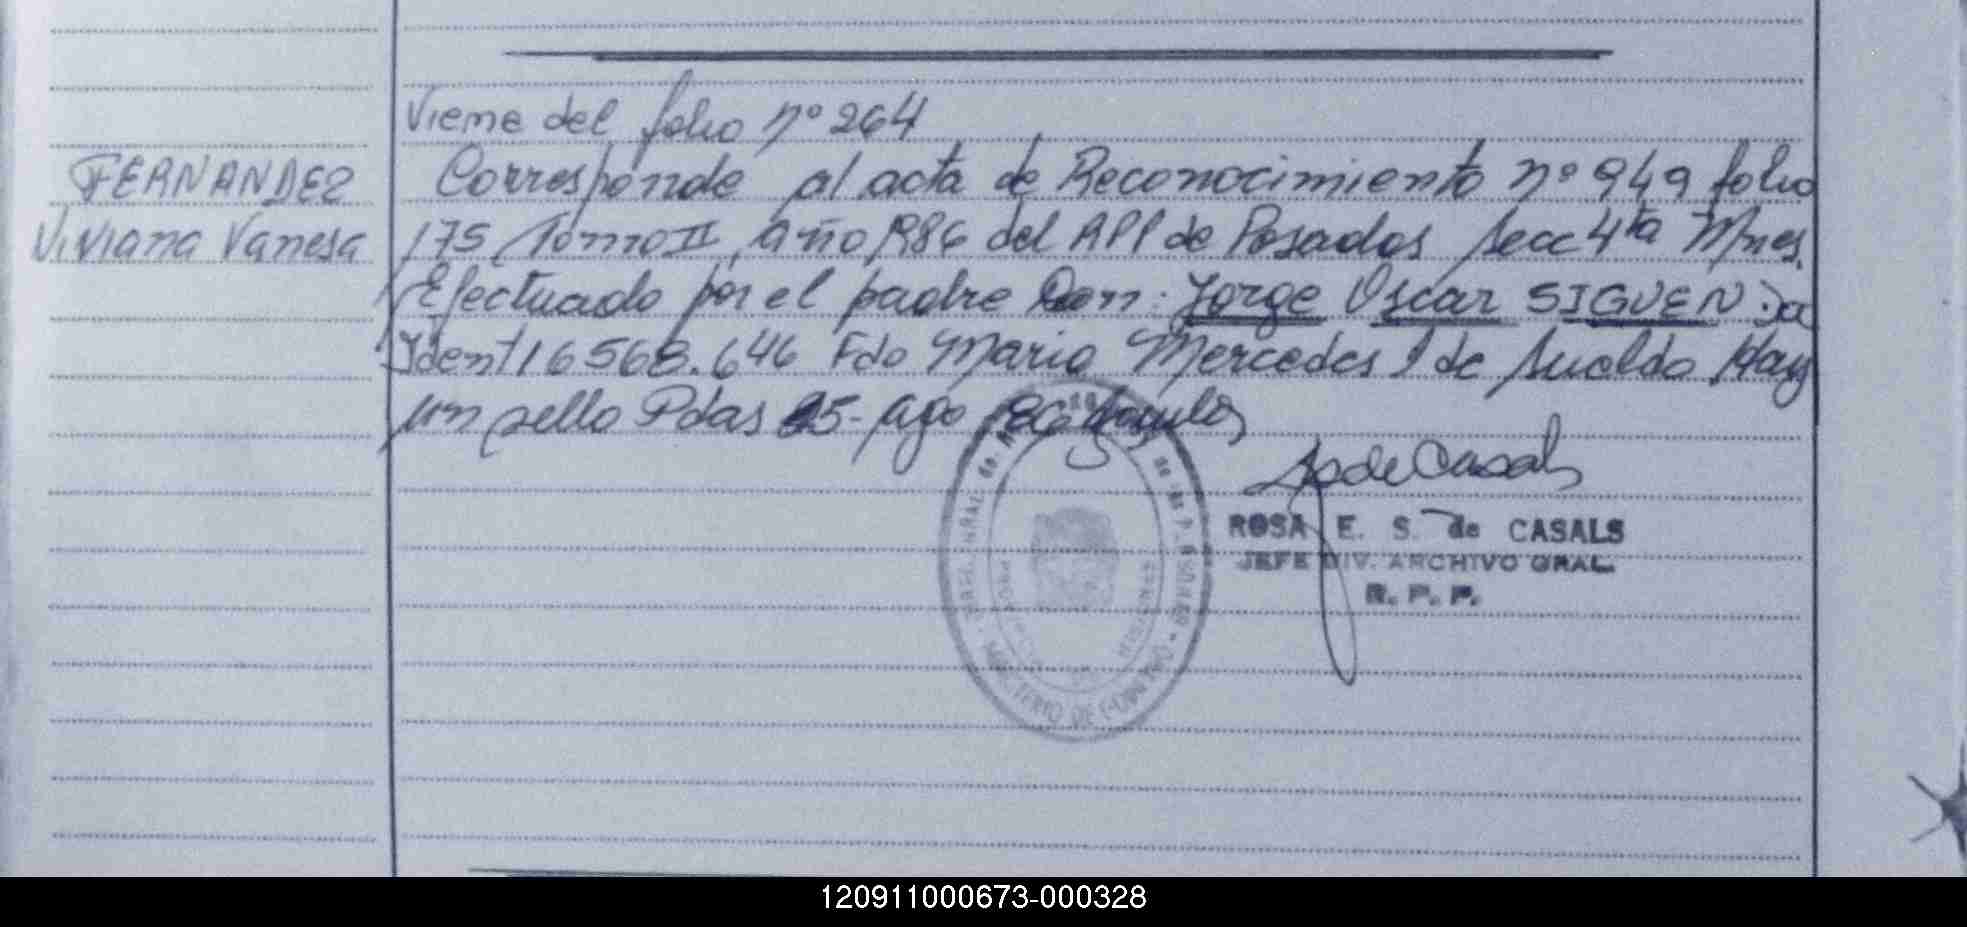 Viene del folio nº 264
FERNANDEZ
Viviana Vanesa
Corresponde al acta de Reconocimiento nº 949 folio
175 Tomo II, año 1986 del APP de Posadas secc 4ta Mnes.
Efectuado por el padre Don: Jorge Oscar SIGUEN Doc
Ident 16568.646 Fdo Maria Mercedes de Sualdo Hay
un sello Pdas 25-Ago 86
S de Casals
ROSA E. S. de CASALS
JEFE DIV. ARCHIVO GRAL.
R. P. P.
MINISTERIO DE GOBIERNO
120911000673-000328